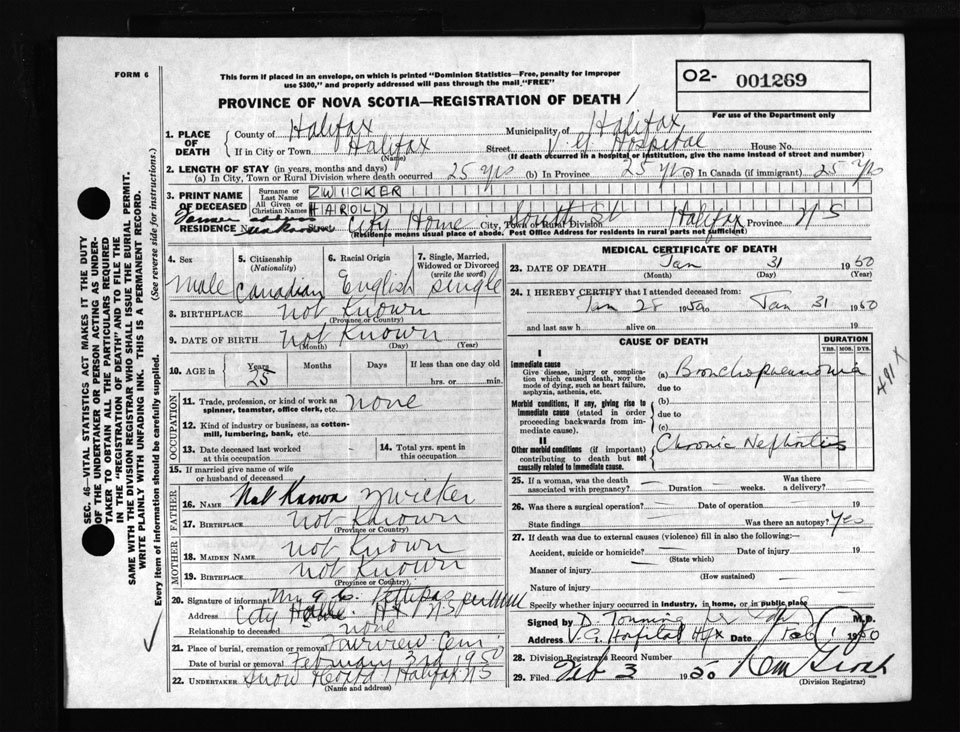 FORM 6
This form if placed in an envelope, on which is printed "Dominion Statistics—Free, penalty for improper
use $300," and properly addressed will pass through the mail "FREE"
O2- 001269
For use of the Department only
PROVINCE OF NOVA SCOTIA—REGISTRATION OF DEATH
1. PLACE OF DEATH County of Halifax Municipality of Halifax
If in City or Town Halifax Street V. G. Hospital House No.
(Name) (If death occurred in a hospital or institution, give the name instead of street and number)
2. LENGTH OF STAY (in years, months and days)
(a) In City, Town or Rural Division where death occurred 25 yrs (b) In Province 25 yrs (c) In Canada (if immigrant) 25 yrs
3. PRINT NAME OF DECEASED Surname or Last Name ZWICKER
All Given or Christian Names HAROLD
Former address
RESIDENCE No. Street City Home South St City, Town or Rural Division Halifax Province NS
(Residence means usual place of abode. Post Office Address for residents in rural parts not sufficient)
4. Sex 5. Citizenship (Nationality) 6. Racial Origin 7. Single, Married, Widowed or Divorced (write the word)
Male Canadian English Single
8. BIRTHPLACE not Known
(Province or Country)
9. DATE OF BIRTH not Known
(Month) (Day) (Year)
10. AGE in Years Months Days If less than one day old
25 hrs. or min.
OCCUPATION
11. Trade, profession, or kind of work as spinner, teamster, office clerk, etc. none
12. Kind of industry or business, as cotton-mill, lumbering, bank, etc.
13. Date deceased last worked at this occupation 14. Total yrs. spent in this occupation
15. If married give name of wife or husband of deceased
FATHER
16. NAME Not Known Zwicker
17. BIRTHPLACE not Known
(Province or Country)
MOTHER
18. MAIDEN NAME not Known
19. BIRTHPLACE not Known
(Province or Country)
20. Signature of informant
Address City Home Hx N.S.
Relationship to deceased none
21. Place of burial, cremation or removal Fairview Cem
Date of burial or removal February 3rd 1950
22. UNDERTAKER Snow Halifax NS
(Name and address)
MEDICAL CERTIFICATE OF DEATH
23. DATE OF DEATH Jan 31 1950
(Month) (Day) (Year)
24. I HEREBY CERTIFY that I attended deceased from:
Jan 28 1950 to Jan 31 1950
and last saw h alive on 19
CAUSE OF DEATH DURATION
YRS. MOS. DYS.
I
Immediate cause
Give disease, injury or complication which caused death, NOT the mode of dying, such as heart failure, asphyxia, asthenia, etc.
(a) Bronchopneumonia
due to
491X
Morbid conditions, if any, giving rise to immediate cause (stated in order proceeding backwards from immediate cause).
(b)
due to
(c)
II
Other morbid conditions (if important) contributing to death but not causally related to immediate cause.
Chronic Nephritis
25. If a woman, was the death associated with pregnancy? Duration weeks. Was there a delivery?
26. Was there a surgical operation? Date of operation 19
State findings Was there an autopsy? Yes
27. If death was due to external causes (violence) fill in also the following:—
Accident, suicide or homicide? Date of injury 19
(State which)
Manner of injury
(How sustained)
Nature of injury
Specify whether injury occurred in industry, in home, or in public place
Signed by D. M.D.
Address V. G. Hospital Hfx Date Feb 1 1950
28. Division Registrar's Record Number
29. Filed Feb 3 1950
(Division Registrar)
SEC. 46—VITAL STATISTICS ACT MAKES IT THE DUTY
OF THE UNDERTAKER OR PERSON ACTING AS UNDER-
TAKER TO OBTAIN ALL THE PARTICULARS REQUIRED
IN THE "REGISTRATION OF DEATH" AND TO FILE THE
SAME WITH THE DIVISION REGISTRAR WHO SHALL ISSUE THE BURIAL PERMIT.
WRITE PLAINLY WITH UNFADING INK. THIS IS A PERMANENT RECORD.
Every item of information should be carefully supplied. (See reverse side for instructions.)